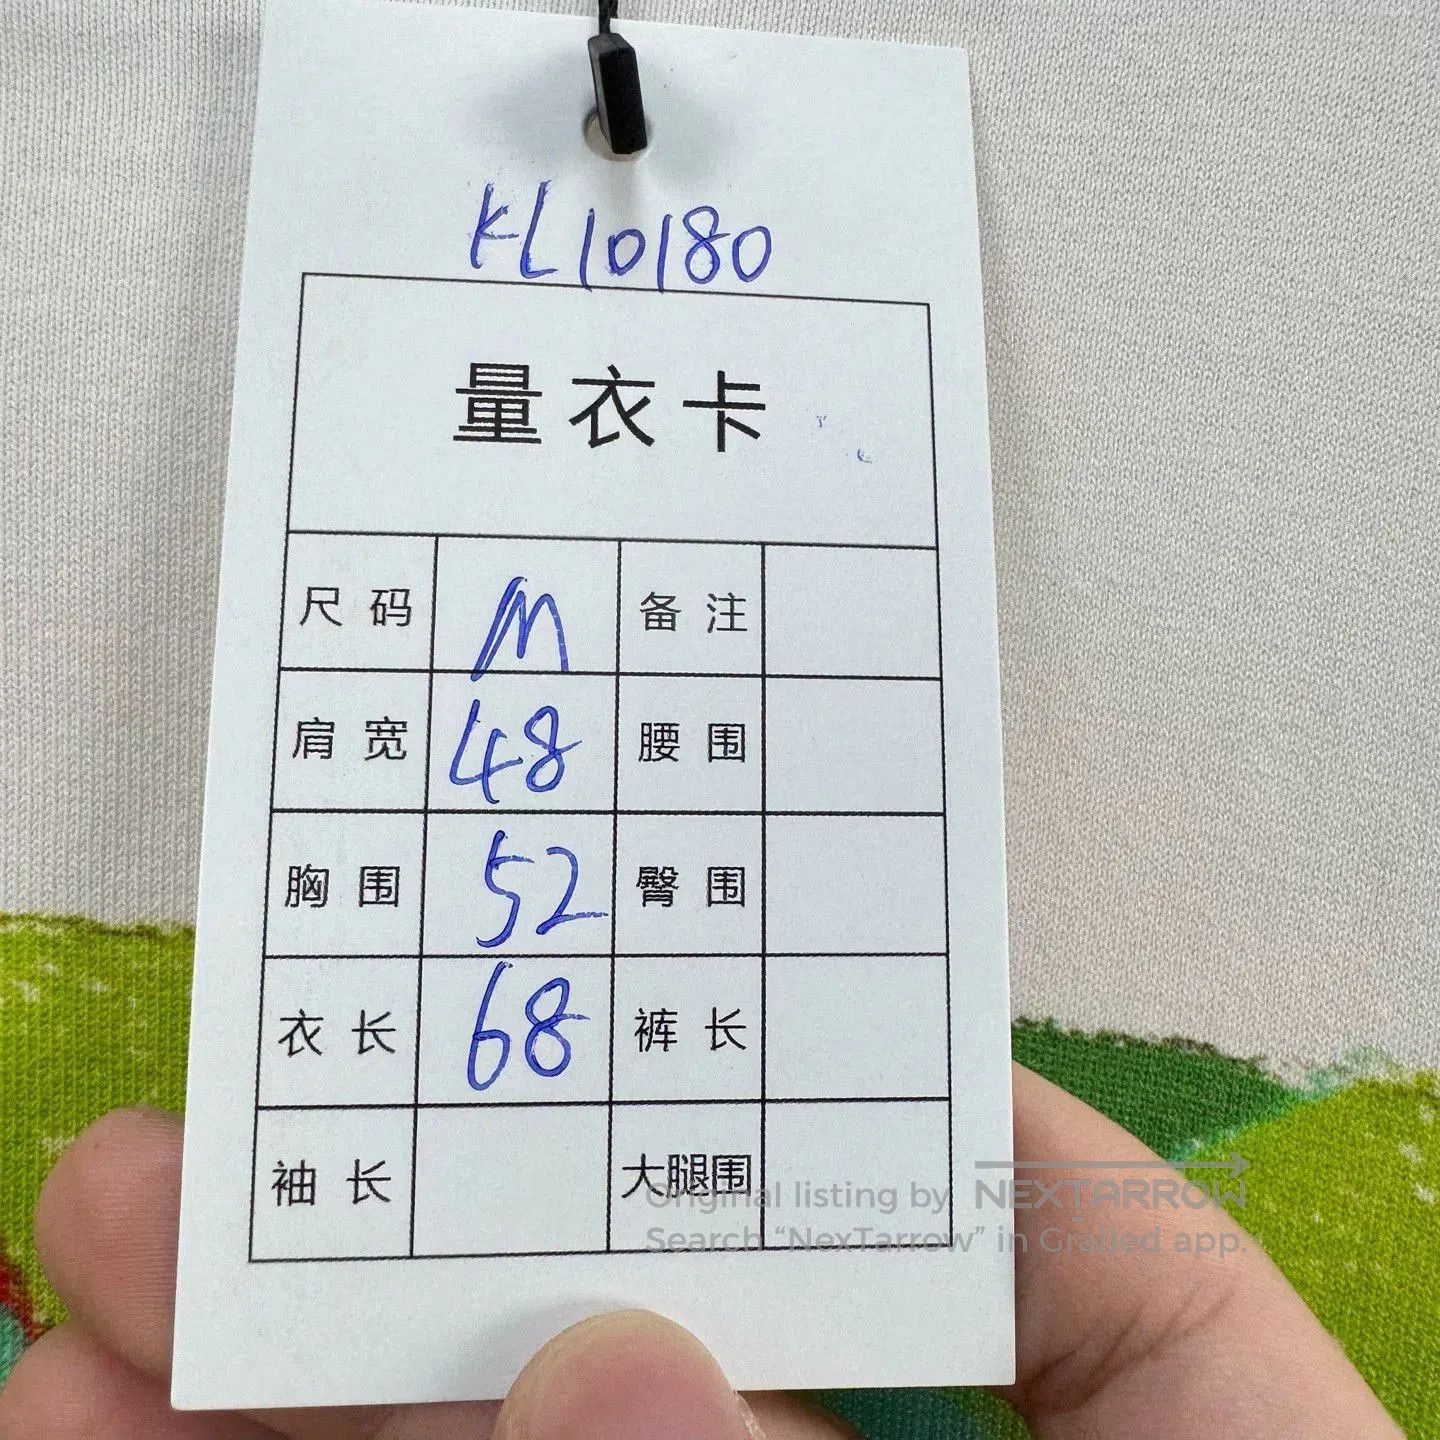 KL10180
量衣卡
尺码 M 备注
肩宽 48 腰围
胸围 52 臀围
衣长 68 裤长
袖长 大腿围
Original listing by NEXTARROW
Search “NexTarrow” in Grailed app.